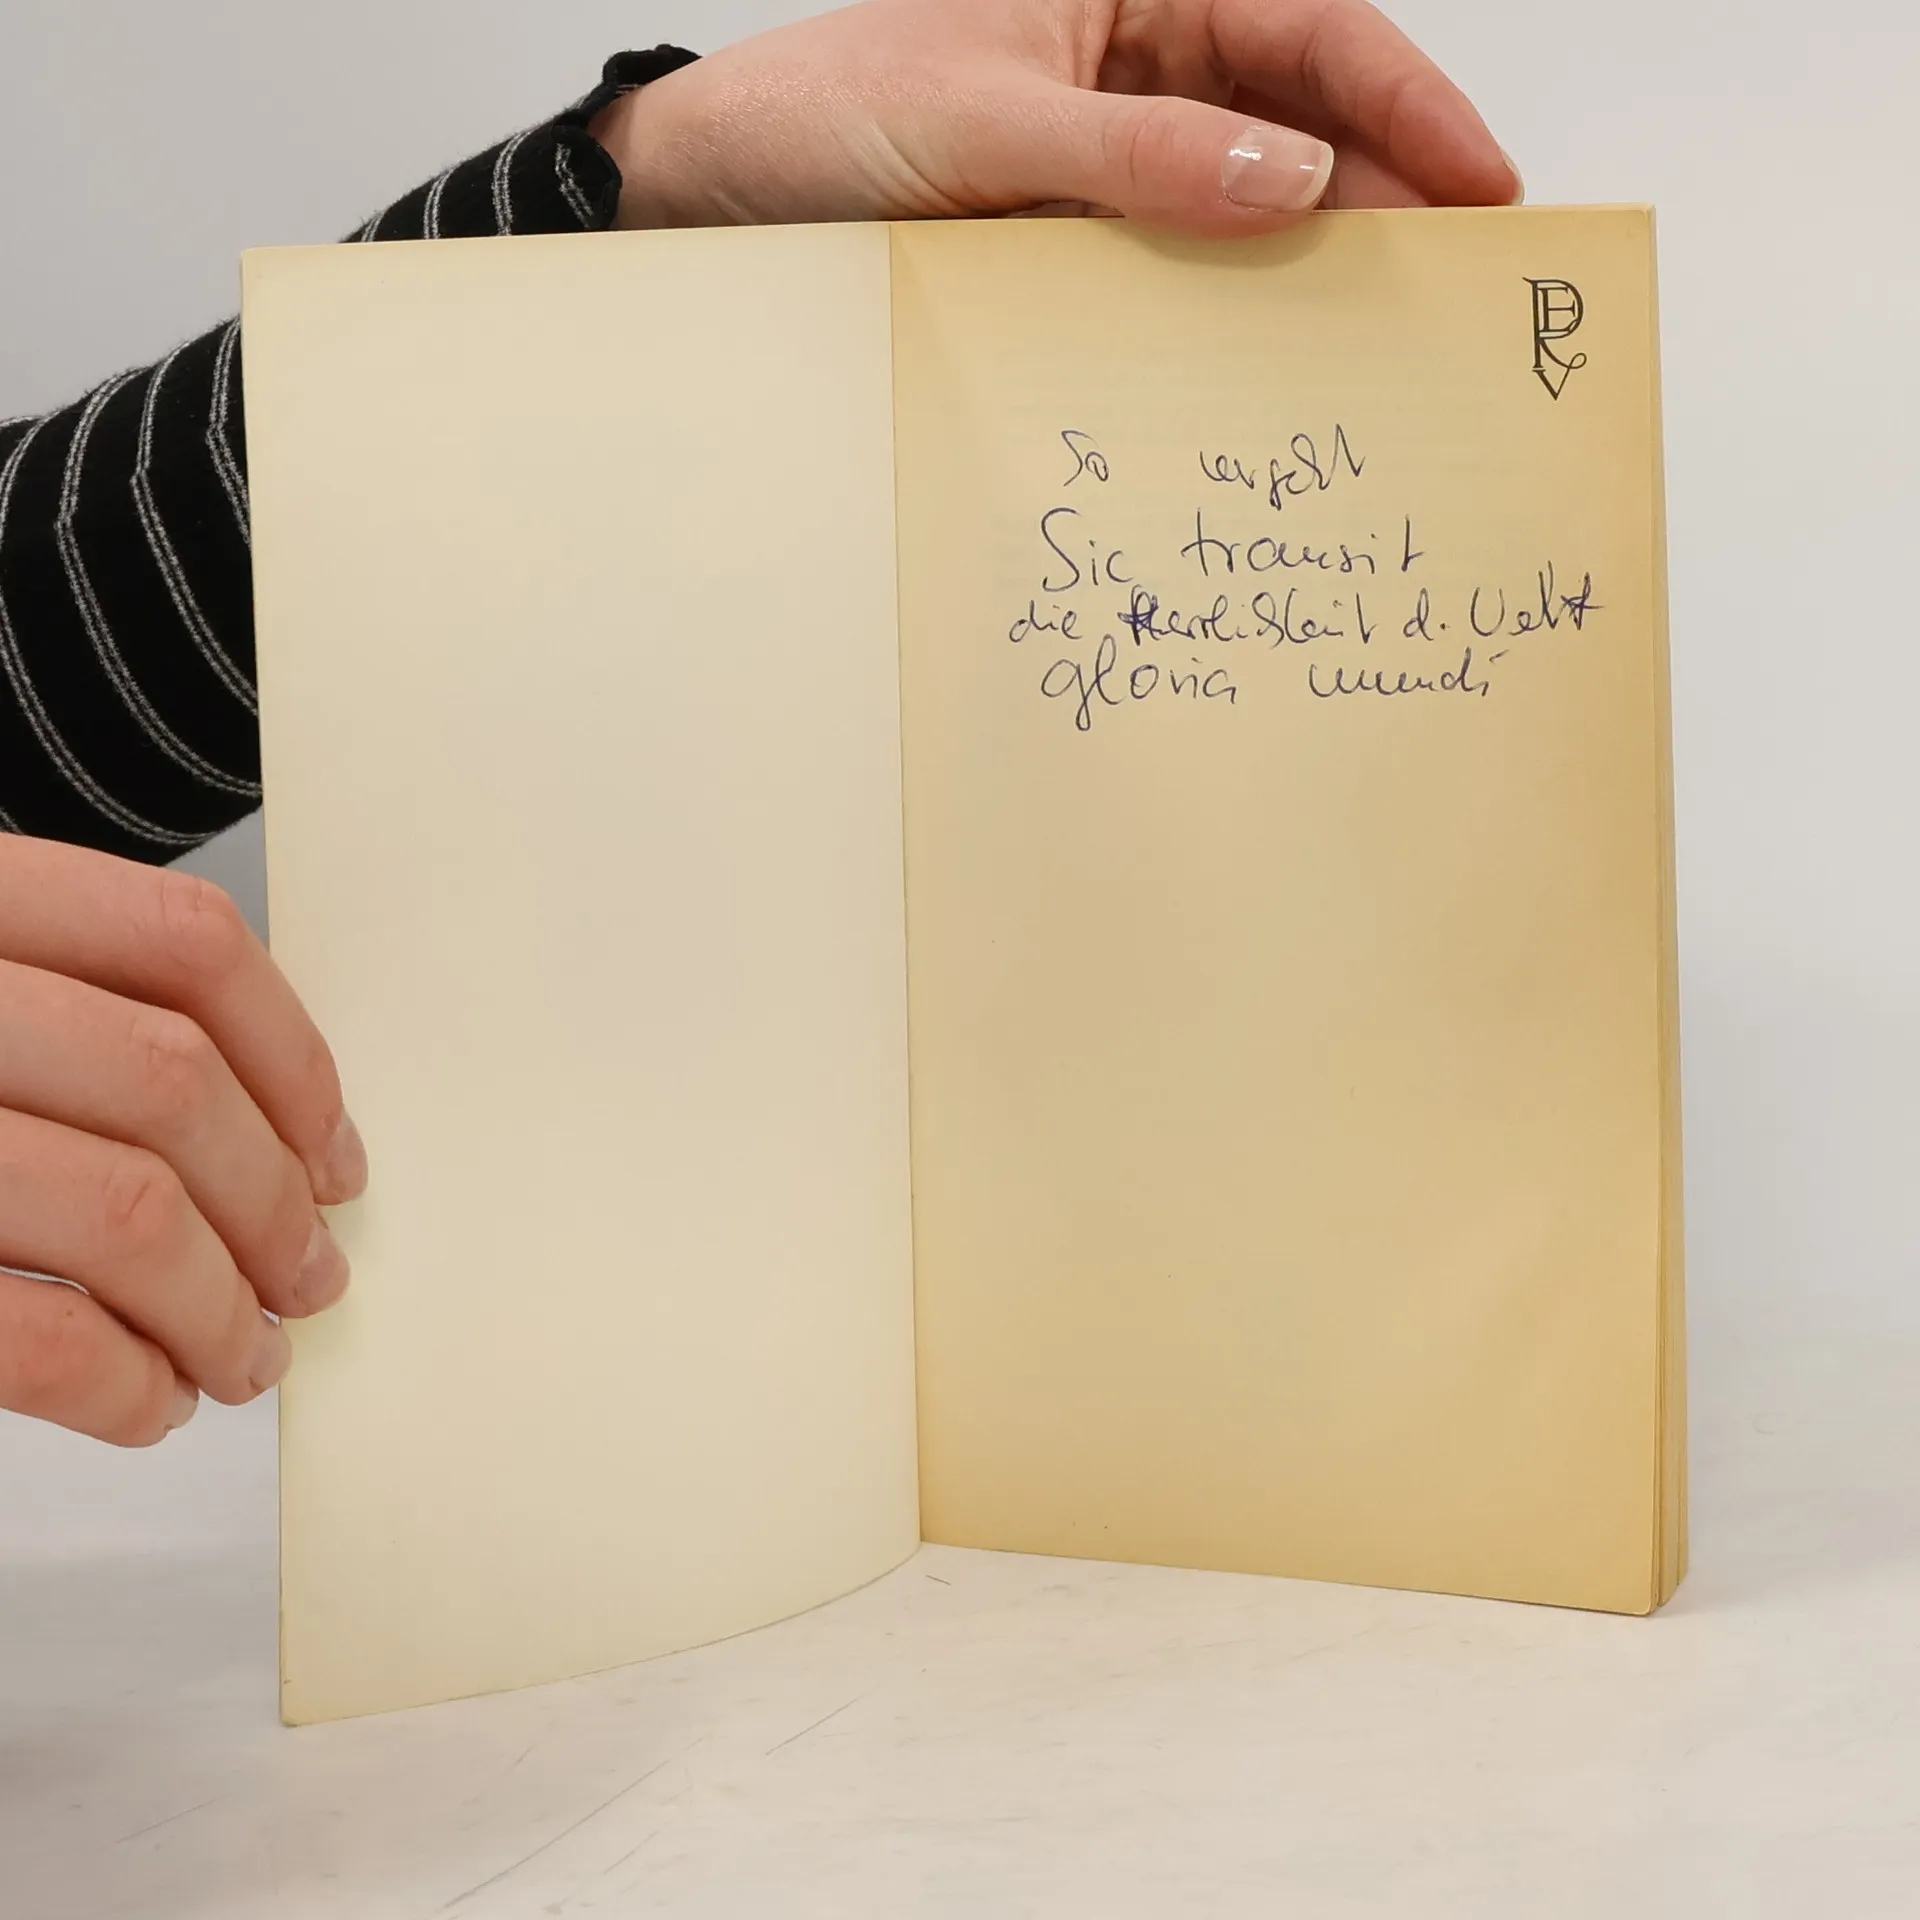 PEV
So vergeht
Sic transit
die Herrlichkeit d. Welt
gloria mundi